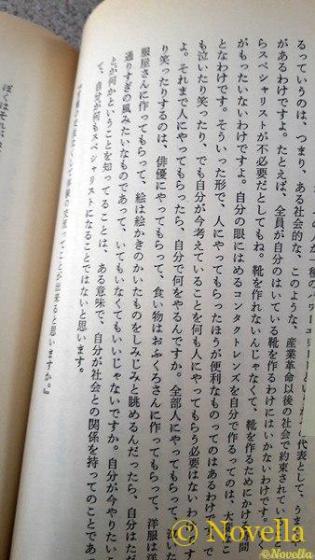 るっていうのは、つまり、ある社会的な、このような、産業革命以後の社会で約束されてい
があるわけですよ。たとえば、全員が自分のはいている靴を作るわけにはいかないわけです。
らスペシャリストが不必要だとしてもね。靴を作れないんじゃなくて、靴を作るためにかけ
がもったいないわけですよ。自分の眼にはめるコンタクトレンズを自分で作るってのは、大
となわけです。そういった形で、人にやってもらったほうが便利なものってのはあるわけで
も泣いたり笑ったり、でも自分が今考えていることを何も人にやってもらう必要はないわ
よ。それまで人にやってもらったら、自分で何をやるんですか。全部人にやってもらって、泣い
り笑ったりするのは、俳優にやってもらって、食い物はおふくろさんに作ってもらって、洋服は
服屋さんに作ってもらって、絵は絵かきのかいたものをしみじみと眺めるんだったら、自分はただ
通りすぎの風みたいなものであって、いてもいなくてもいいじゃないですか。自分が今やりたい
とが何かということを知ってることは、ある意味で、自分が社会との関係を持ってのことであ
て、自分が何もスペシャリストになることではないと思います。
ことが出来ると思いますか。』
ぼくはそれ
© Novella
©Novella